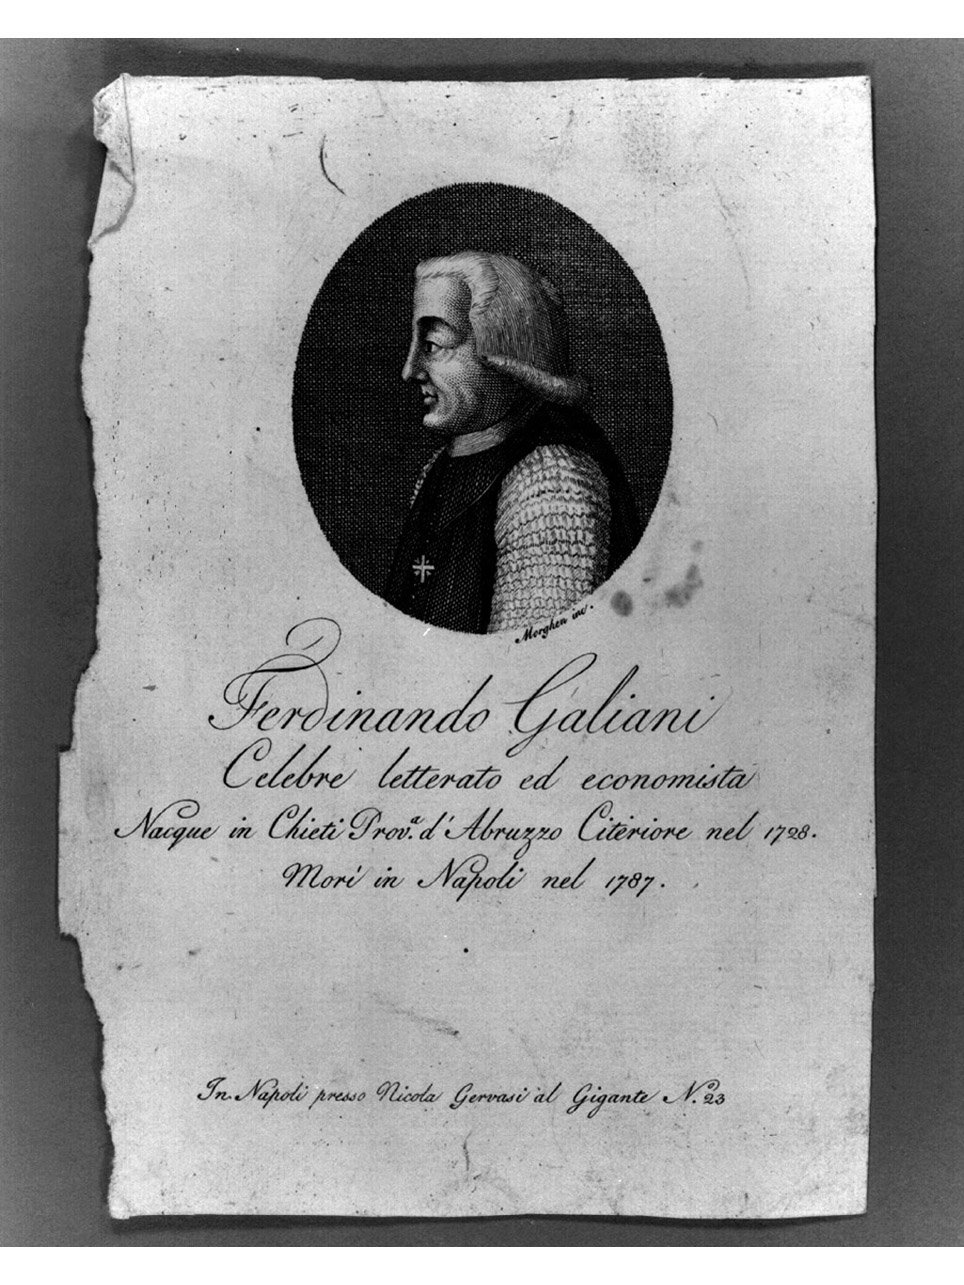 Morghen inc.
Ferdinando Galiani
Celebre letterato ed economista
Nacque in Chieti Prov.a d'Abruzzo Citeriore nel 1728.
Morì in Napoli nel 1787.
In Napoli presso Nicola Gervasi al Gigante N.o 23